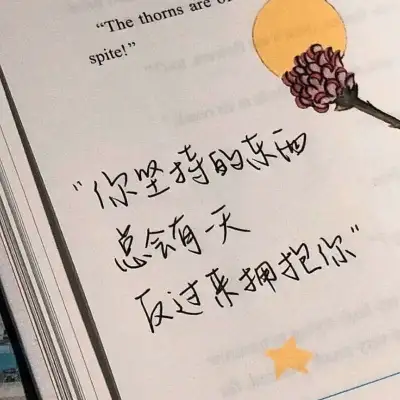 “The thorns are of
spite!”
“你坚持的东西
总会有一天
反过来拥抱你”